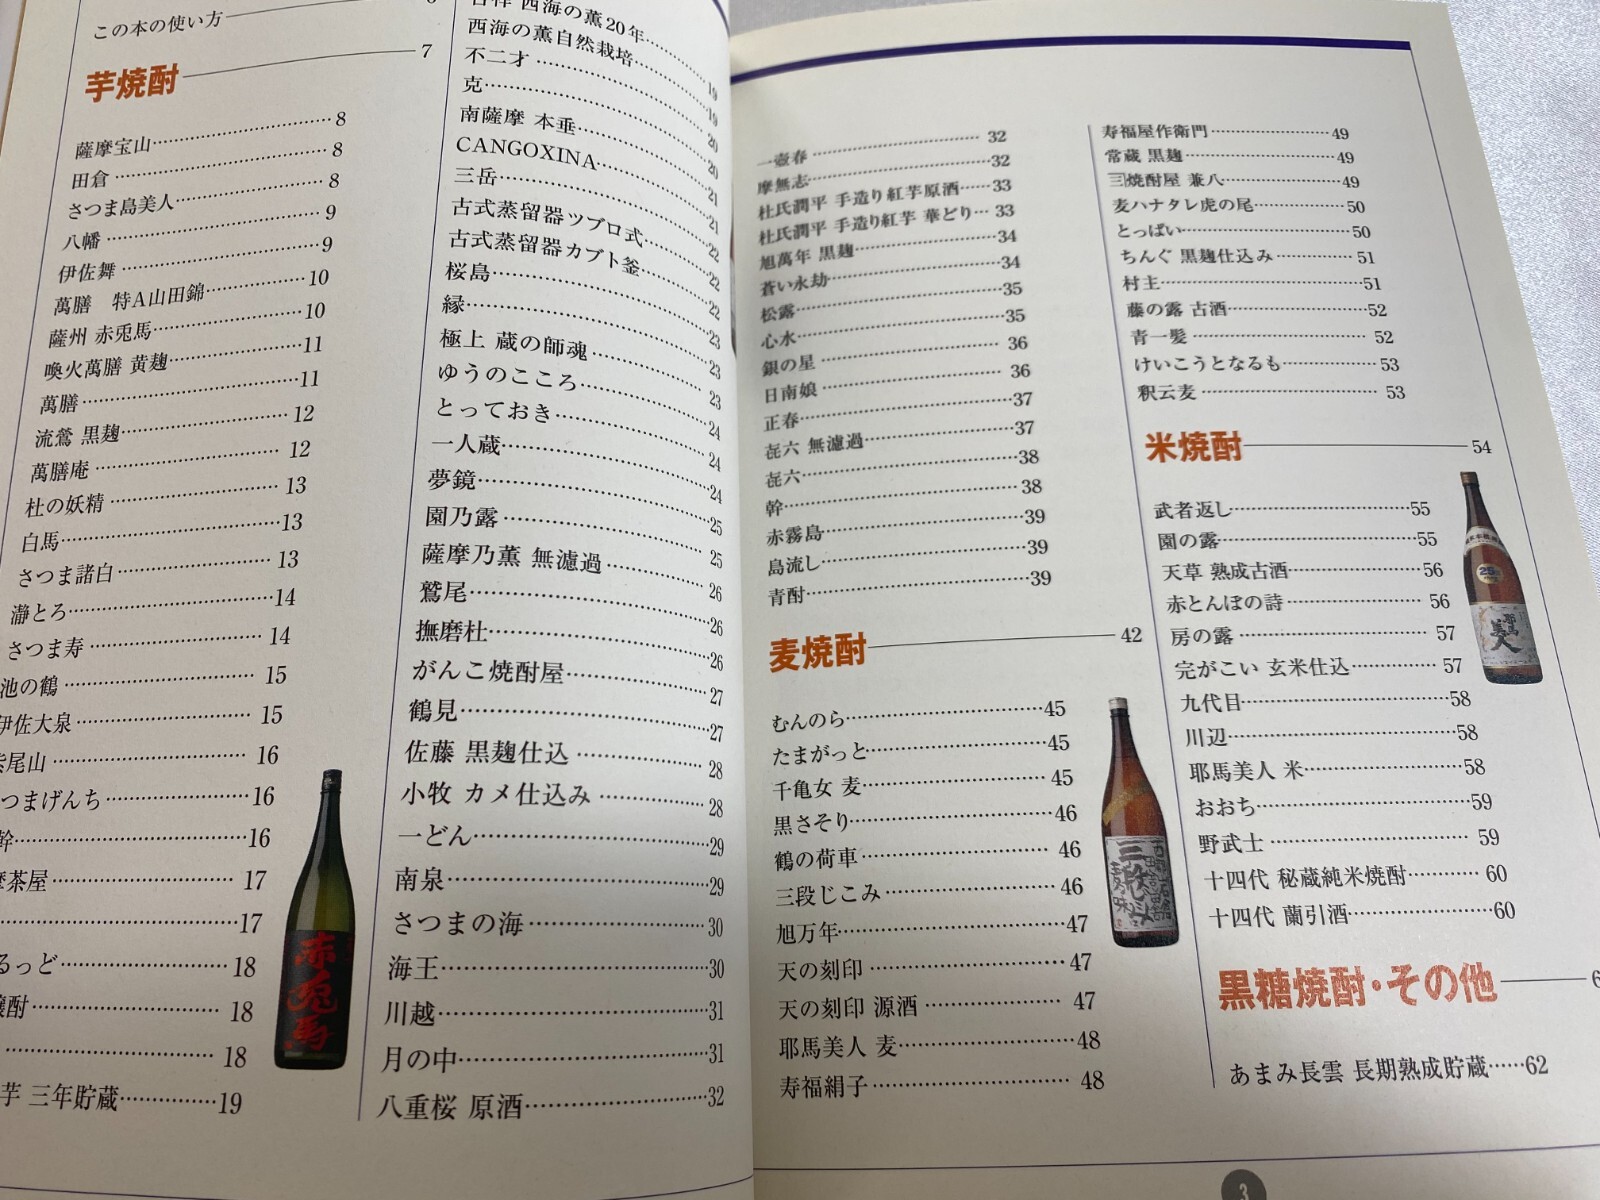 この本の使い方
芋焼酎 7
薩摩宝山 8
田倉 8
さつま島美人 8
八幡 9
伊佐舞 9
萬膳 特A山田錦 10
薩州 赤兎馬 10
喚火萬膳 黄麹 11
萬膳 11
流鶯 黒麹 12
萬膳庵 12
杜の妖精 13
白馬 13
さつま諸白 13
瀞とろ 14
さつま寿 14
池の鶴 15
伊佐大泉 15
尾山 16
つまげんち 16
幹 16
茶屋 17
17
るっど 18
酎 18
18
芋 三年貯蔵 19
西海の薫20年 19
西海の薫自然栽培 19
不二才 20
克 20
南薩摩 本垂 21
CANGOXINA 21
三岳 22
古式蒸留器ツブロ式 22
古式蒸留器カブト釜 22
桜島 23
縁 23
極上 蔵の師魂 23
ゆうのこころ 24
とっておき 24
一人蔵 24
夢鏡 25
園乃露 25
薩摩乃薫 無濾過 26
鷲尾 26
撫磨杜 26
がんこ焼酎屋 27
鶴見 27
佐藤 黒麹仕込 28
小牧 カメ仕込み 28
一どん 29
南泉 29
さつまの海 30
海王 30
川越 31
月の中 31
八重桜 原酒 32
赤兎馬
一壺春 32
摩無志 32
杜氏潤平 手造り紅芋原酒 33
杜氏潤平 手造り紅芋 華どり 33
旭萬年 黒麹 34
蒼い永劫 34
松露 35
心水 35
銀の星 36
日南娘 36
正春 37
㐂六 無濾過 37
㐂六 38
幹 38
赤霧島 39
島流し 39
青酎 39
麦焼酎 42
むんのら 45
たまがっと 45
千亀女 麦 45
黒さそり 46
鶴の荷車 46
三段じこみ 46
旭万年 47
天の刻印 47
天の刻印 源酒 47
耶馬美人 麦 48
寿福絹子 48
寿福屋作衛門 49
常蔵 黒麹 49
三焼酎屋 兼八 49
麦ハナタレ虎の尾 50
とっぱい 50
ちんぐ 黒麹仕込み 51
村主 51
藤の露 古酒 52
青一髪 52
けいこうとなるも 53
釈云麦 53
米焼酎 54
武者返し 55
園の露 55
天草 熟成古酒 56
赤とんぼの詩 56
房の露 57
完がこい 玄米仕込 57
九代目 58
川辺 58
耶馬美人 米 58
おおち 59
野武士 59
十四代 秘蔵純米焼酎 60
十四代 蘭引酒 60
黒糖焼酎・その他
あまみ長雲 長期熟成貯蔵 62
25
3